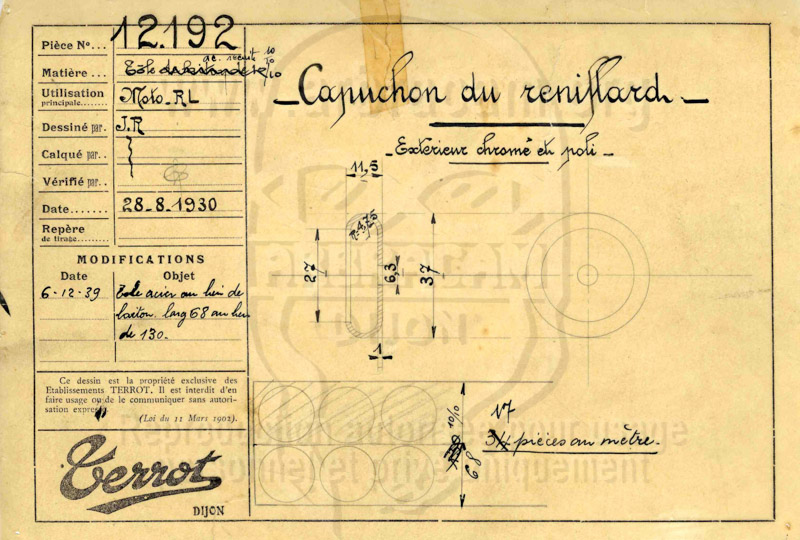 Pièce N°... 12.192
ac. recuit 10/10
Matière... Tôle de laiton de 10/10
Utilisation
principale........ Moto_RL
Dessiné par. J.R
Calqué par..
Vérifié par..
Date....... 28_8_1930
Repère
de tirage........
MODIFICATIONS
Date Objet
6-12-39 Tôle acier au lieu de
laiton. larg 68 au lieu
de 130.
Ce dessin est la propriété exclusive des
Etablissements TERROT. Il est interdit d'en
faire usage ou de le communiquer sans autori-
sation expresse.
(Loi du 11 Mars 1902).
Terrot
DIJON
_Capuchon du reniflard._
_Extérieur chromé et poli_
11,5
R=4,75
27
6,3
37
1
10/10
68
17
34 pièces au mètre.
Reproduction autorisée pour usage
personnel et privé uniquement